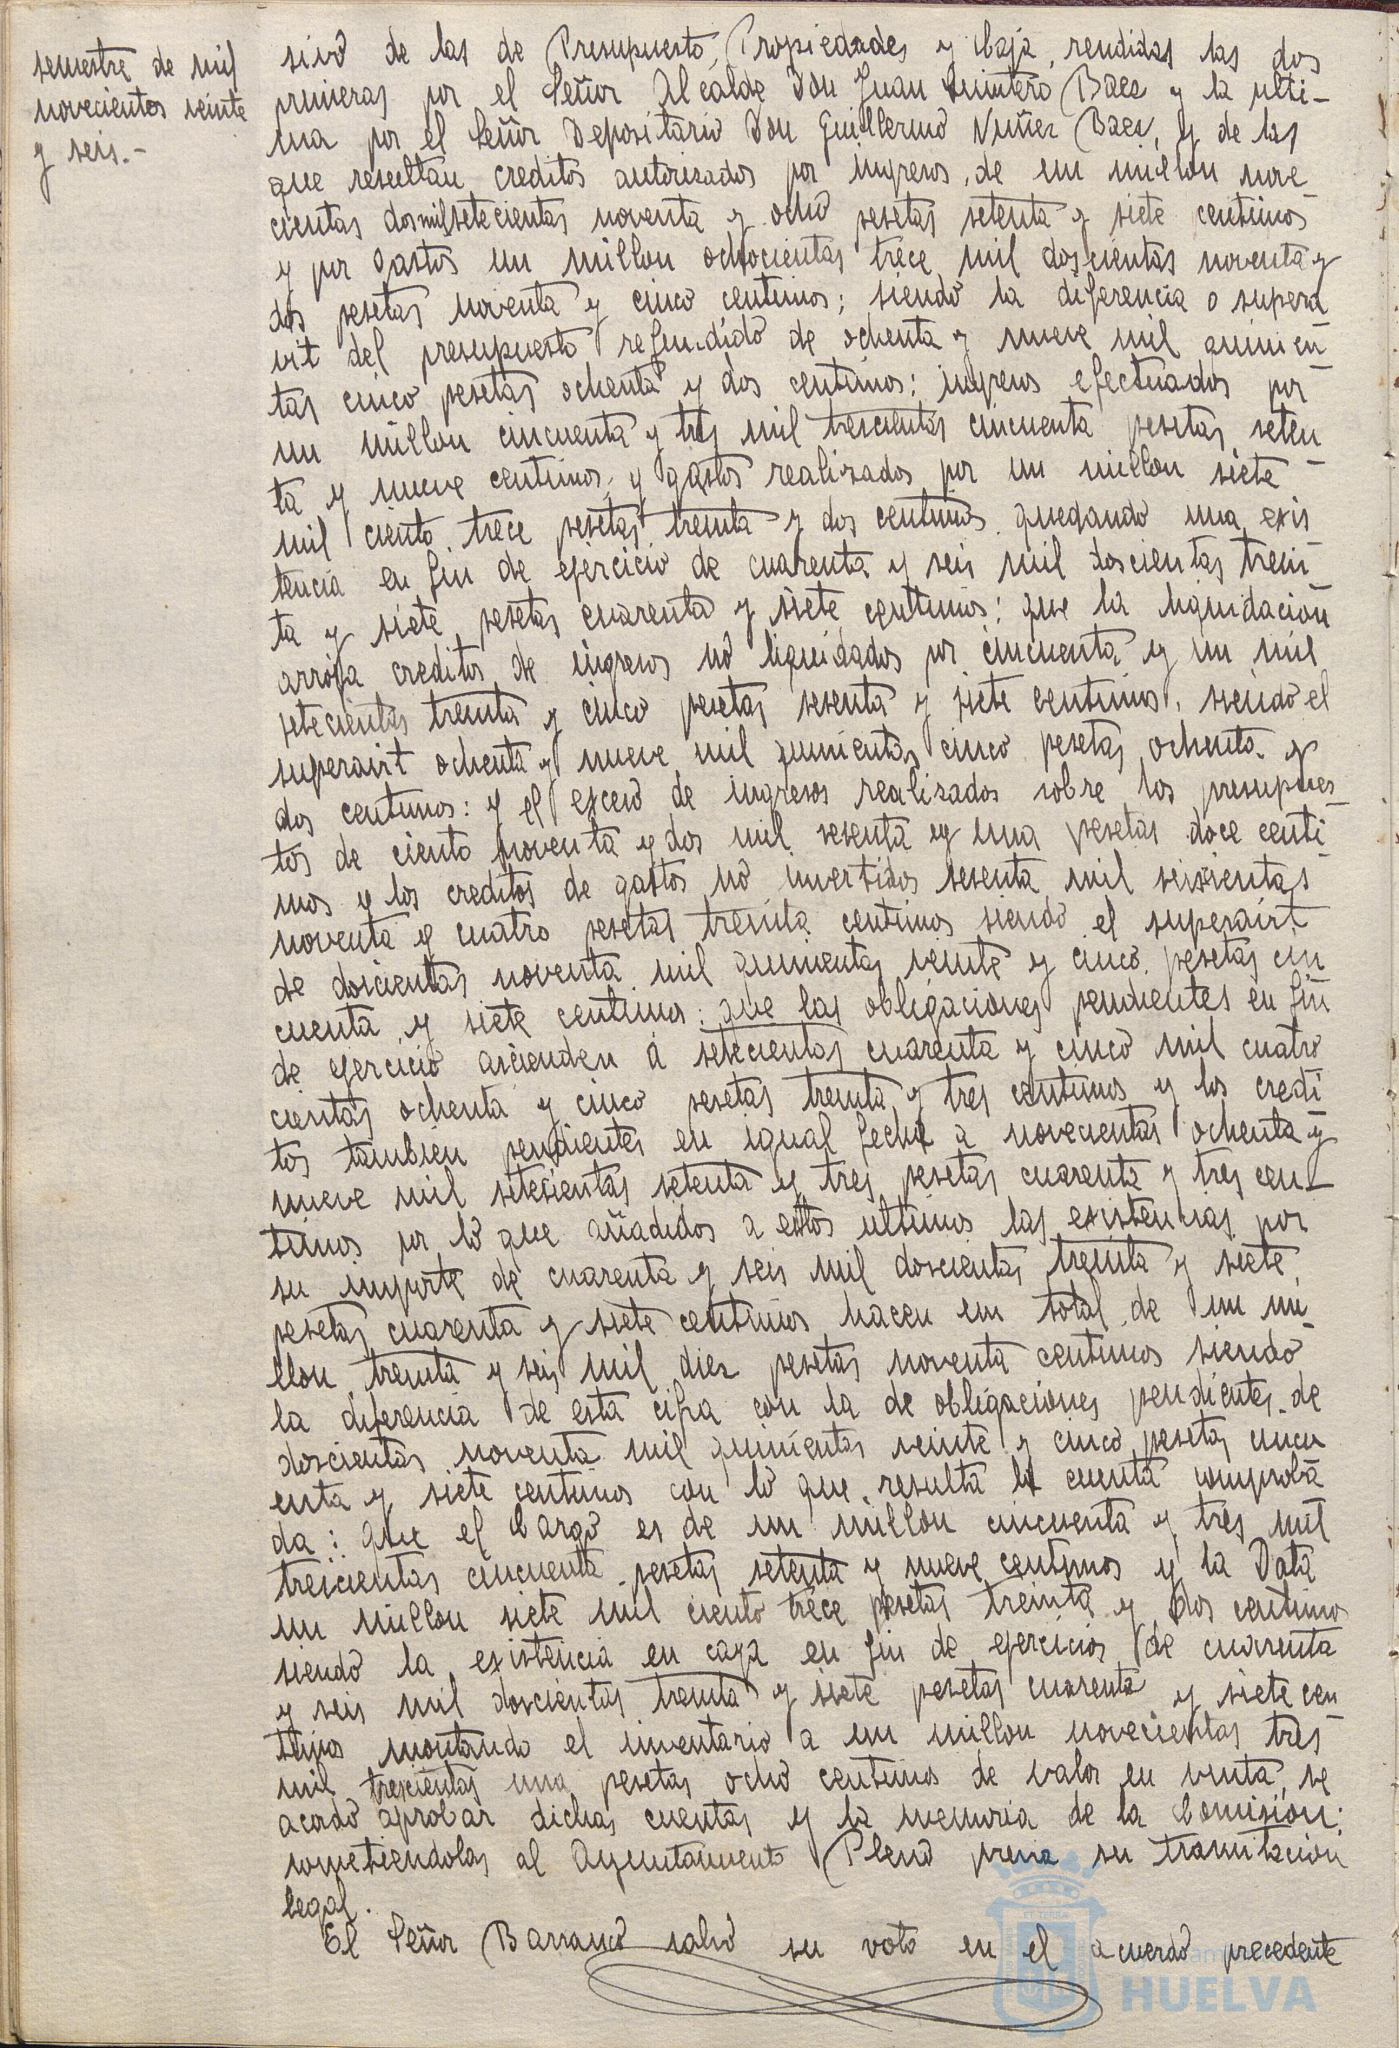 semestre de mil
novecientos veinte
y seis.-
sivo de las de Presupuesto, Propiedades y Caja, rendidas las dos
primeras por el Señor Alcalde Don Juan Quintero Baez y la ulti-
ma por el Señor Depositario Don Guillermo Nuñez Baez, y de las
que resultan creditos autorizados por ingresos, de un millon nove
cientas dosmilsetecientas noventa y ocho pesetas setenta y siete centimos
y por gastos un millon ochocientas trece mil doscientas noventa y
dos pesetas noventa y cinco centimos; siendo la diferencia o supera
vit del presupuesto refundido de ochenta y nueve mil quinien
tas cinco pesetas ochenta y dos centimos: ingresos efectuados por
un millon cincuenta y tres mil trescientas cincuenta pesetas seten
ta y nueve centimos, y gastos realizados por un millon siete
mil ciento trece pesetas treinta y dos centimos quedando una exis
tencia en fin de ejercicio de cuarenta y seis mil doscientas trein
ta y siete pesetas cuarenta y siete centimos: que la liquidacion
arroja creditos de ingresos no liquidados por cincuenta y un mil
setecientas treinta y cinco pesetas sesenta y siete centimos, siendo el
superavit ochenta y nueve mil quinientas cinco pesetas ochenta y
dos centimos: y el exceso de ingresos realizados sobre los presupues
tos de ciento noventa y dos mil sesenta y una pesetas doce centi
mos y los creditos de gastos no invertidos sesenta mil seiscientas
noventa y cuatro pesetas treinta centimos siendo el superavit
de doscientas noventa mil quinientas veinte y cinco pesetas cin
cuenta y siete centimos: que las obligaciones pendientes en fin
de ejercicio ascienden á setecientas cuarenta y cinco mil cuatro
cientas ochenta y cinco pesetas treinta y tres centimos y los credi
tos tambien pendientes en igual fecha a novecientas ochenta y
nueve mil setecientas setenta y tres pesetas cuarenta y tres cen-
timos por lo que añadidos a estos ultimos las existencias por
su importe de cuarenta y seis mil doscientas treinta y siete,
pesetas cuarenta y siete centimos hacen un total de un mi
llon treinta y seis mil diez pesetas noventa centimos siendo
la diferencia de esta cifra con la de obligaciones pendientes de
doscientas noventa mil quinientas veinte y cinco pesetas cincu
enta y siete centimos con lo que resulta la cuenta comproba
da: que el Cargo es de un millon cincuenta y tres mil
trescientas cincuenta pesetas setenta y nueve centimos y la Data
un millon siete mil ciento trece pesetas treinta y dos centimos
siendo la existencia en caja en fin de ejercicios de cuarenta
y seis mil doscientas treinta y siete pesetas cuarenta y siete cen
timos montando el inventario a un millon novecientas tres
mil trescientas una pesetas ocho centimos de valor en venta, se
acordó aprobar dichas cuentas y la memoria de la Comisión;
sometiendolas al Ayuntamiento Pleno previa su tramitacion
legal.
El Señor Barranco salvó su voto en el acuerdo precedente
HUELVA